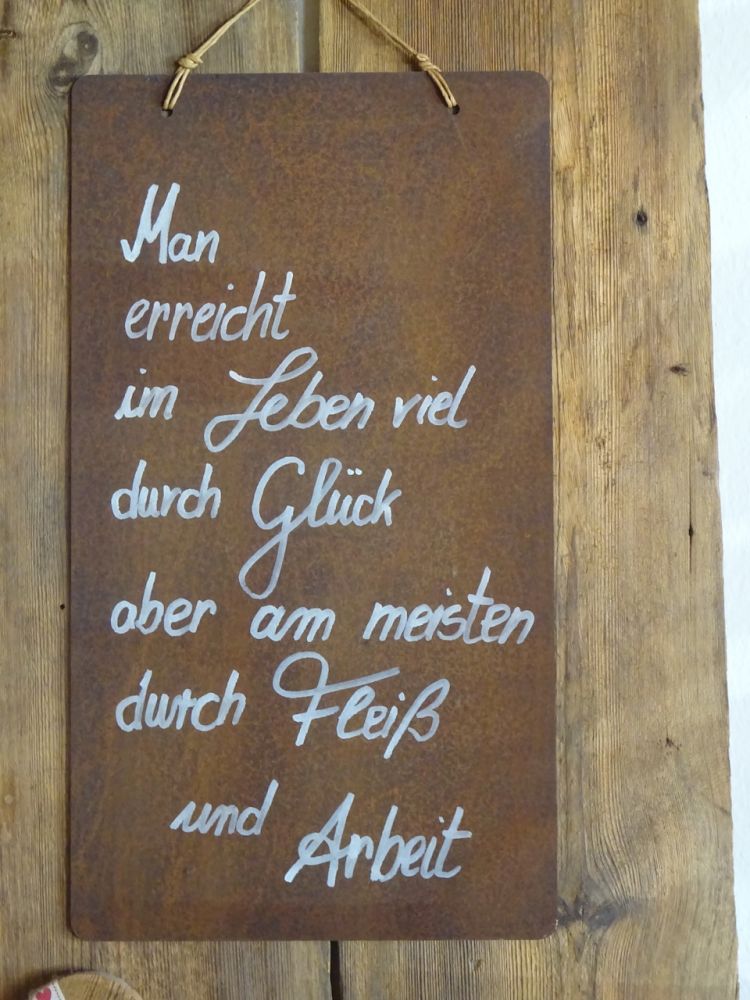 Man
erreicht
im Leben viel
durch Glück
aber am meisten
durch Fleiß
und Arbeit